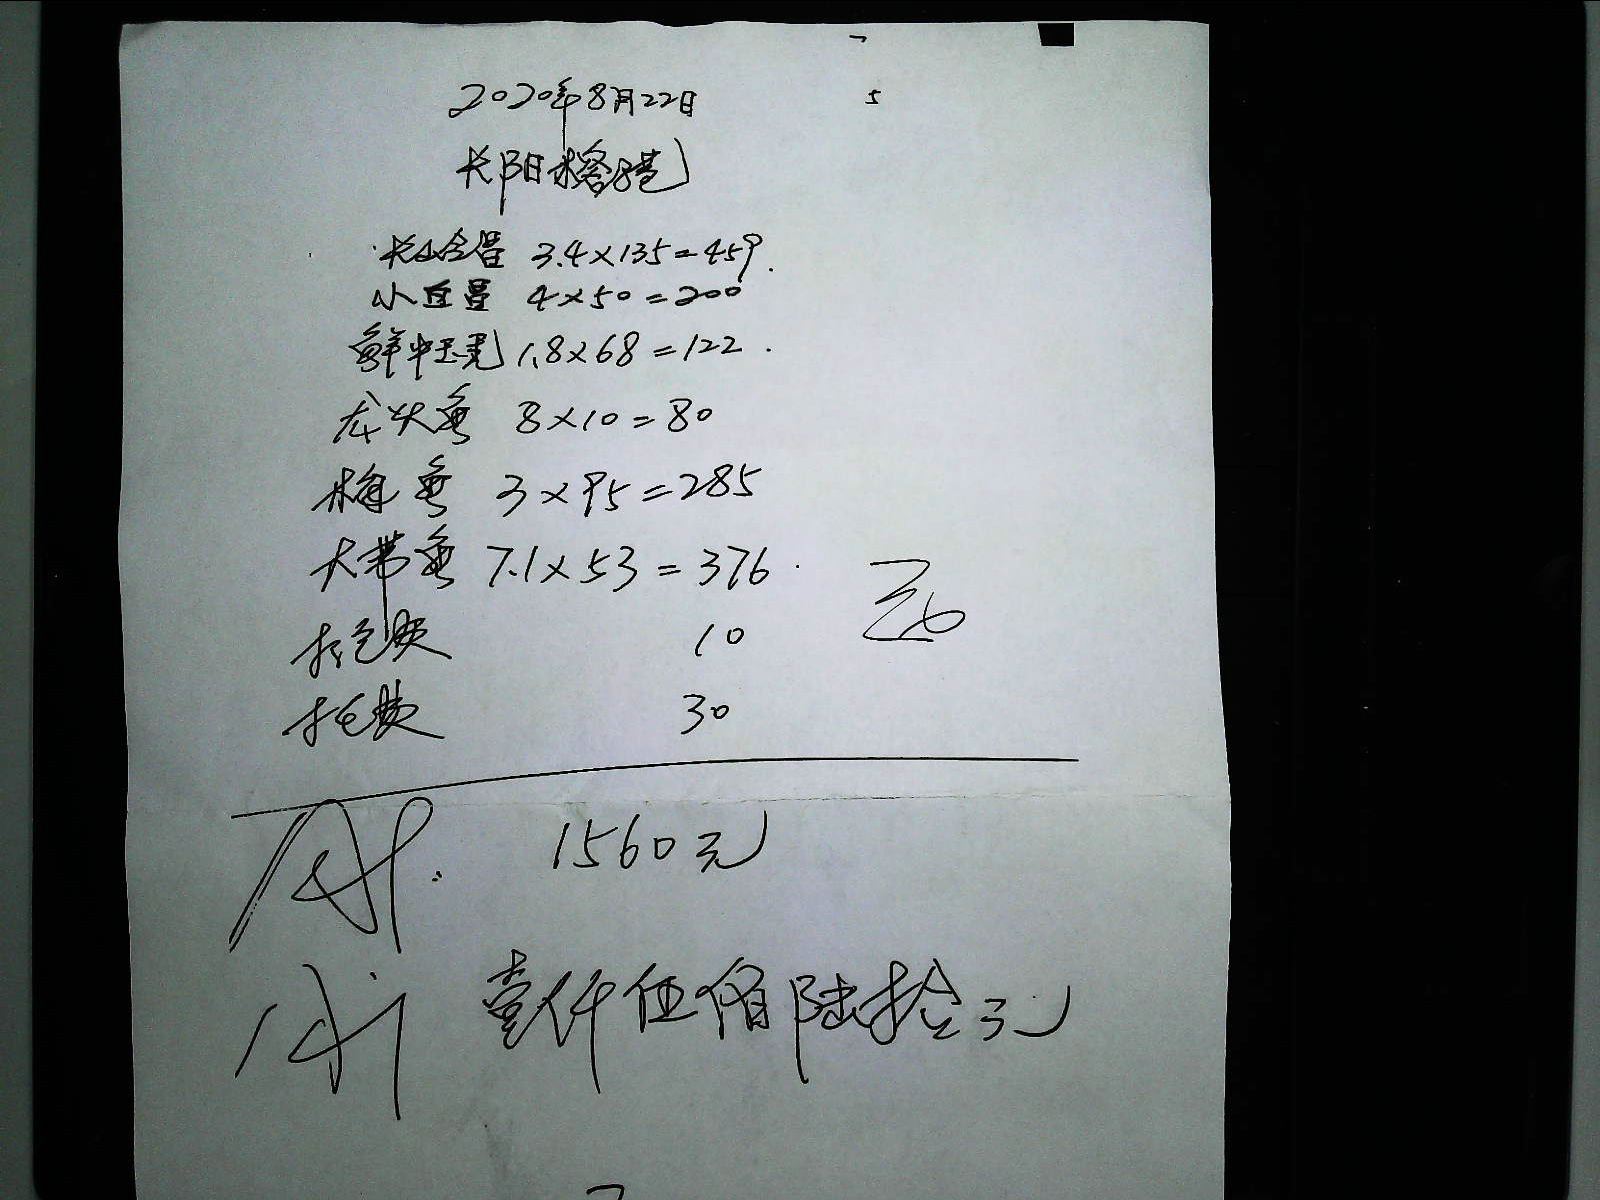 2020年8月22日
5
长阳
3.4×135=459
小 4×50=200
鲜中 1.8×68=122
龙头鱼 8×10=80
梅鱼 3×95=285
大带鱼 7.1×53=376
打包费 10
托费 30
1560元
壹仟伍佰陆拾元